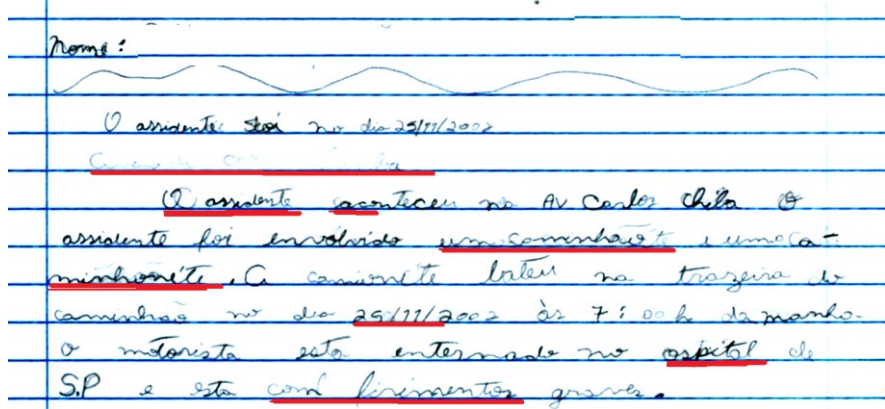 Nome:
O assidente foi no dia 25/11/2002
O assidente aconteceu na AV Carlos Chila O
assidente foi envolvido um caminhão e uma ca-
minhonéte. A camionéte bateu na trazeira do
caminhão no dia 25/11/2002 às 7:00h da manha.
o motorista esta enternado no ospital de
S.P e esta com firimentos graves.